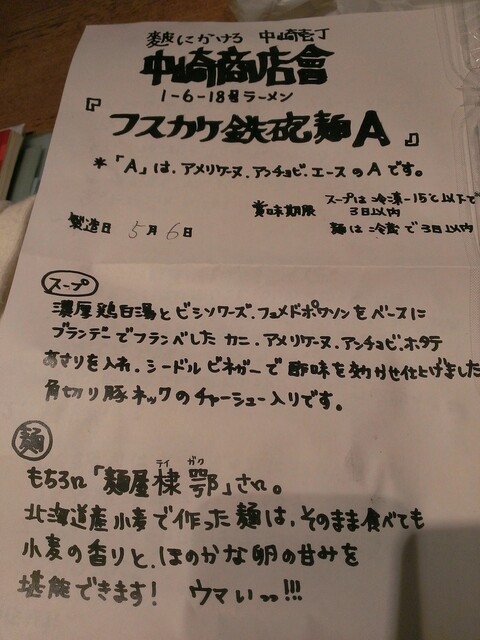 麺にかけろ 中崎壱丁
中崎商店會
1-6-18号ラーメン
『フスカケ鉄砲麺A』
*「A」は、アメリケーヌ、アンチョビ、エースのAです。
賞味期限 スープは冷凍-15℃以下で
3日以内
製造日 5月6日 麺は冷蔵で3日以内
スープ
濃厚鶏白湯とビシソワーズ、フュメドポワソンをベースに
ブランデーでフランベしたカニ、アメリケーヌ、アンチョビ、ホタテ
あさりを入れ、シードルビネガーで酸味を効かせ仕上げました
角切り豚ネックのチャーシュー入りです。
麺
テイ ガク
もちろん「麺屋棣鄂」さん。
北海道産小麦で作った麺は、そのまま食べても
小麦の香りと、ほのかな卵の甘みを
堪能できます! ウマいっ!!!